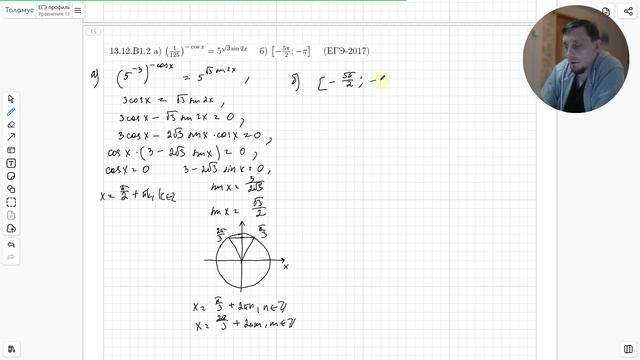 Таламус
ЕГЭ профиль
Уравнения 13
15
13.12.В1.2 а) (1/125)^(−cos x) = 5^(√3 sin 2x) б) [−5π/2; −π] (ЕГЭ-2017)
а) (5^(−3))^(−cos x) = 5^(√3 sin 2x),
3cos x = √3 sin 2x,
3cos x − √3 sin 2x = 0,
3cos x − 2√3 sin x · cos x = 0,
cos x · (3 − 2√3 sin x) = 0,
cos x = 0 3 − 2√3 sin x = 0,
x = π/2 + πk, k∈Z
sin x = 3/(2√3)
sin x = √3/2
2π/3 π/3
x
x = π/3 + 2πn, n∈Z
x = 2π/3 + 2πm, m∈Z
б) [−5π/2; −